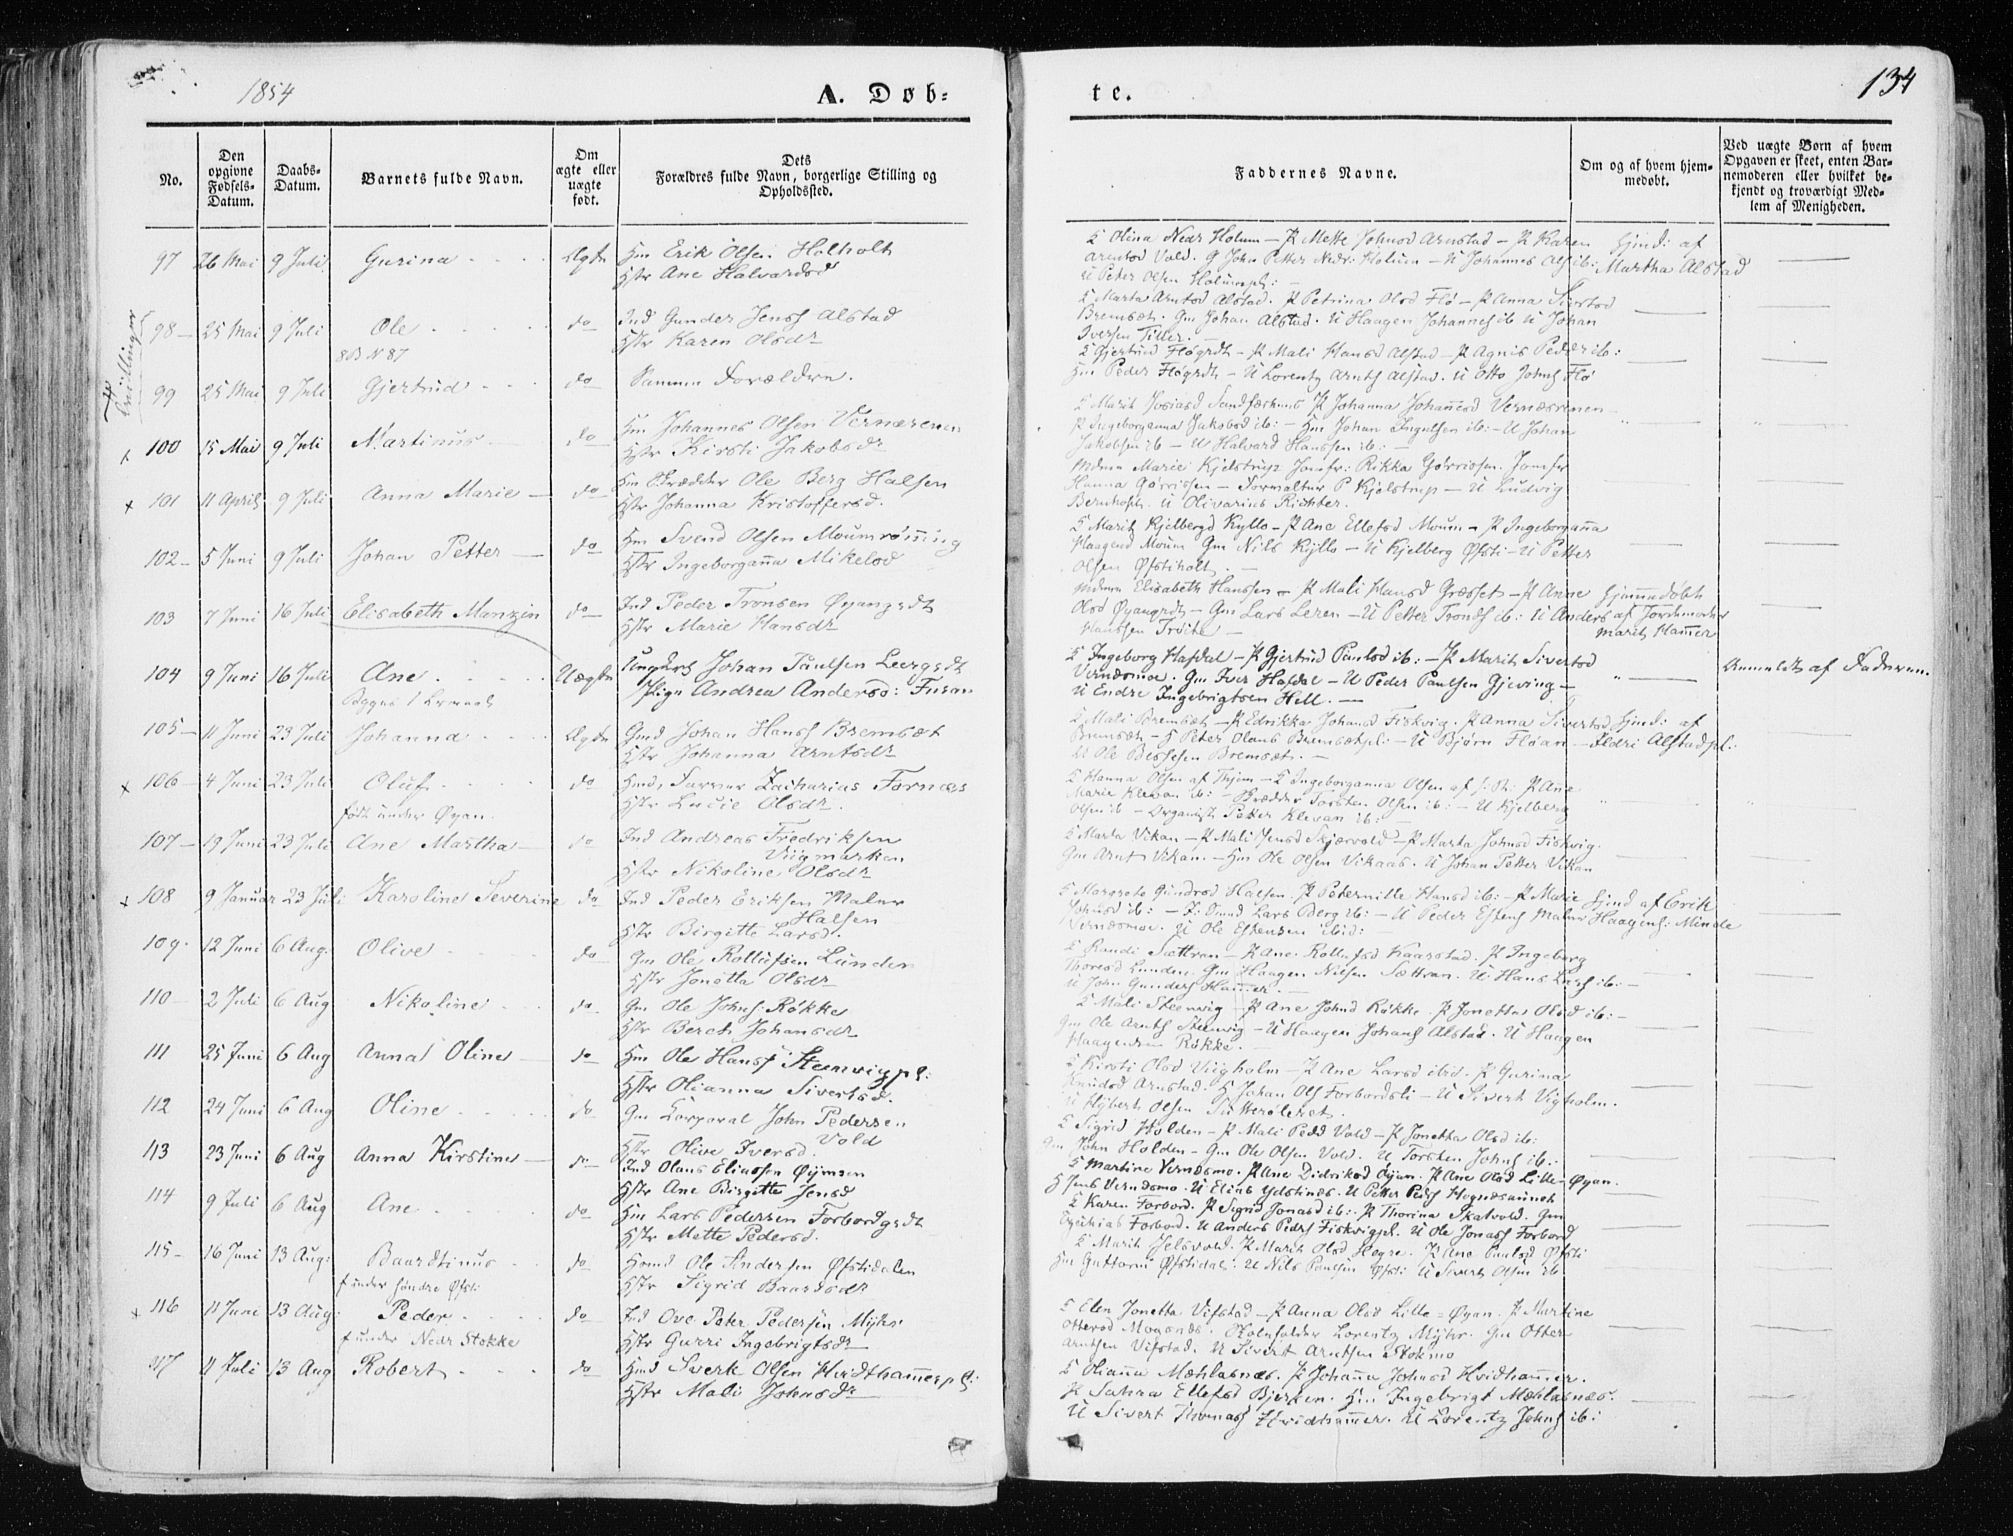 1854
A. Døb-
te.
134
No.
Den opgivne Fødsels-Datum.
Daabs-Datum.
Barnets fulde Navn.
Om ægte eller uægte født.
Dets Forældres fulde Navn, borgerlige Stilling og Opholdssted.
Faddernes Navne.
Om og af hvem hjemmedøbt.
Ved uægte Børn af hvem Opgaven er skeet, enten Barnemoderen eller hvilket bekjendt og troværdigt Medlem af Menigheden.
97 26 Mai 9 Juli Gurina Ægte Hm Erik Olsen Holholt
Hstr Ane Halvardsd
E Olina Nedr Holum - P Mette Johnsd Arnstad - P Karen
Arntsd Vold. G John Petter Nedr: Holum - U Johannes Ols ib:
U Peter Olsen Holumspl:
Hjmd: af
Martha Alstad
Tvillinger
98 25 Mai 9 Juli Ole do Ind Gunder Jenss Alstad
Hstr Karen Olsdr
E Marta Arntsd Alstad. P Petrina Olsd Flø - P Anna Sivertsd
Brembset. Gm Johan Alstad. U Haagen Johannes ib U Johan
Iversen Tiller.
99 25 Mai 9 Juli Gjertrud do Samme Forældre.
E Gjertrud Fløgrdt - P Mali Hansd Alstad - P Agnis Pedd ib:
Hm Peder Fløgrdt - U Lorentz Arnts Alstad. U Otto Johns Flø
100 15 Mai 9 Juli Martinus do Hm Johannes Olsen Vernæsenen
Hstr Kirsti Jakobsdr
E Marit Josiasd Sandfærhus P Johanna Johannesd Vernæsenen
P Ingeborganna Jakobsd ib: - Hm Johan Ingulsen ib: - U Johan
Jakobsen ib - U Halvard Hanssen ib:
101 11 April 9 Juli Anna Marie do Hm Skrædder Ole Berg Halsen
Hstr Johanna Kristoffersd.
Mdme Marie Kjelstrup Jomfr: Rikka Gørrissen. Jomfr
Hanna Gørrissen - P Kjelstrup - U Ludvig
U Olivarius Richter.
102 5 Juni 9 Juli Johan Petter do Hm Svend Olsen Moumrønning
Hstr Ingeborganna Mikelsd
E Marit Kjelbergd Kyllo - P Ane Ellefsd Moum - P Ingeborganna
Haagend Moum Gm Nils Kyllo - U Kjelberg Øfsti - U Petter
Olsen Øfstiholt
103 7 Juni 16 Juli Elisabeth Mantzin do Ind Peder Tronsen Øyangrdt
Hstr Marie Hansdr
Mdme Elisabeth Hanssen - P Mali Hansd Græsset - P Anne
Olsd Øyangrdt - Gm Lars Leren - U Petter Tronds ib: U Anders
Hanssen Troite
Hjemmedøbt
af Jordemoder
Marit Hammer
104 9 Juni 16 Juli Ane Uægte Ungkrl Johan Paulsen Leergrdt
Pige Andrea Andersd: Fusan
E Ingeborg Hafdal - P Gjertrud Paulsd ib: - P Marit Sivertsd
Vernæsmoe. Gm Iver Hafdal - U Peder Paulsen Gjeving -
U Endre Ingebrigtsen Hell.
Anmeldt af Faderen.
105 11 Juni 23 Juli Johanna Ægte Gmd Johan Hanss Brembset
Hstr Johanna Arntsdr
E Mali Brembset - P Edrikka Johansd Fiskvig. P Anna Sivertsd
Brembset - H Peter Olaus Brembsetpl: - U Bjørn Fløan
U Ole Brembset.
Hjmd: af
Ildri Alstadpl:
106 4 Juni 23 Juli Oluf do Zacharias Fornæs
født under Øyan.
Hstr Lucie Olsdr.
E Hanna Olsen af Thjem - E Ingeborganna Olsen P Ane
Marie Klevan ib: - Skrædder Torsten Olsen ib: - U Kjelberg
Olsen ib - Organist Petter Klevan ib:
107 19 Juni 23 Juli Ane Martha do Ind Andreas Fredriksen
Viigmarken
Hstr Nikoline Olsdr
E Marta Vikan - P Mali Jensd Skjervold - P Marta Johnsd Fiskvig.
Gm Arnt Vikan - Hm Ole Olsen Vikaas. U Johan Petter Vikan
108 9 Januar 23 Juli Karoline Severine do Ind Peder Eriksen Maler
Halsen
Hstr Birgitte Larsd.
E Margrete Gundrsd Halsen. P Pekernille Hansd ib: - P Marie
Johnsd ib: - Lars Berg ib: - U Peder Estens Maler
Vernæsmoe. U Ole Estensen ibid:
Hjmd af Erik
Haagens: Minde
109 12 Juni 6 Aug. Olive do Gm Ole Rollufsen Lunden
Hstr Jonetta Olsdr
E Randi Sættran - P Ane Rollufsd Kaarstad. P Ingeborg
Thoresd Lunden. Gm Haagen Nilsen Sættran. U Hans Lars ib:
U John Gunders Hammer.
110 2 Juli 6 Aug Nikoline do Gm Ole Johns Røkke
Hstr Beret Johansdr
E Mali Steenvig - P Ane Johnsd Røkke. P Jonetta Olsd ib:
Gm Ole Arnts Steenvig - U Haagen Johans Alstad. U Haagen
Haagensen Røkke.
111 25 Juni 6 Aug Anna Oline do Hm Ole Hanss Steenvigpl:
Hstr Olianna Sivertsd.
E Kirsti Olsd Viigholm - P Ane Larsd ibid. P Gurina
Knudsd Arnstad. H Johan Ols Forbordsli - U Sivert Vigholm.
U Olsen
112 24 Juni 6 Aug Oline do Gm Korporal John Pedersen
Vold
Hstr Olive Iversd.
E Sigrid Holden - P Mali Pedd Vold - P Jonetta Olsd ib:
Gm John Holden - Gm Ole Olsen Vold. U Torsten Johns ib:
113 23 Juni 6 Aug Anna Kirstine do Ind Olaus Eliassen Øymoen
Hstr Ane Birgitte Jensd
E Martine Vernæsmo. P Ane Didriksd Øyan. P Ane Olsd Lille-Øyan.
H Jens Vernæsmo. U Elias Ydstines. U Petter Peds
114 9 Juli 6 Aug Ane do Hm Lars Pedersen Forbordgrdt
Hstr Mette Pedersd.
E Karen Forbord. P Sigrid Jonasd ib: P Thorina Skatvold. Gm
Forbord. U Anders Peds Fiskvigpl. U Ole Jonass Forbord
115 16 Juni 13 Aug: Baardtinus do Ole Andersen Øfstidalen
f under søndre Øfsti
Hstr Sigrid Baardsdr
E Marit Jelsvold. P Marit Olsd Hegre. P Ane Paulsd Øfsti
Hm Guttorm Øfstidal: U Nils Paulsen Øfsti U Sivert Olsen ib.
116 11 Juni 13 Aug: Peder do Ind Ove Peter Pedersen Myhr
f under Nedr Stokke
Hstr Gurri Ingebrigtsdr
E Elen Jonetta Vifstad - P Anna Olsd Lille-Øyan. P Martine
Ottersd Lorentz Myhr. Gm Otter
Arntsen Vifstad. U Sivert Arntsen Stokmo
117 11 Juli 13 Aug Robert do Hmd Sivert Olsen Hvidthammerpl:
Hstr Mali Johnsdr
E Olianna Mæhlasnæs. P Johanna Johnsd Hvidhammer.
P Sahra Ellefsd Bjerken. Hm Ingebrigt Mæhlasnæs.
U Sivert Thomass Hvidhammer. U Lorentz Johns ib: